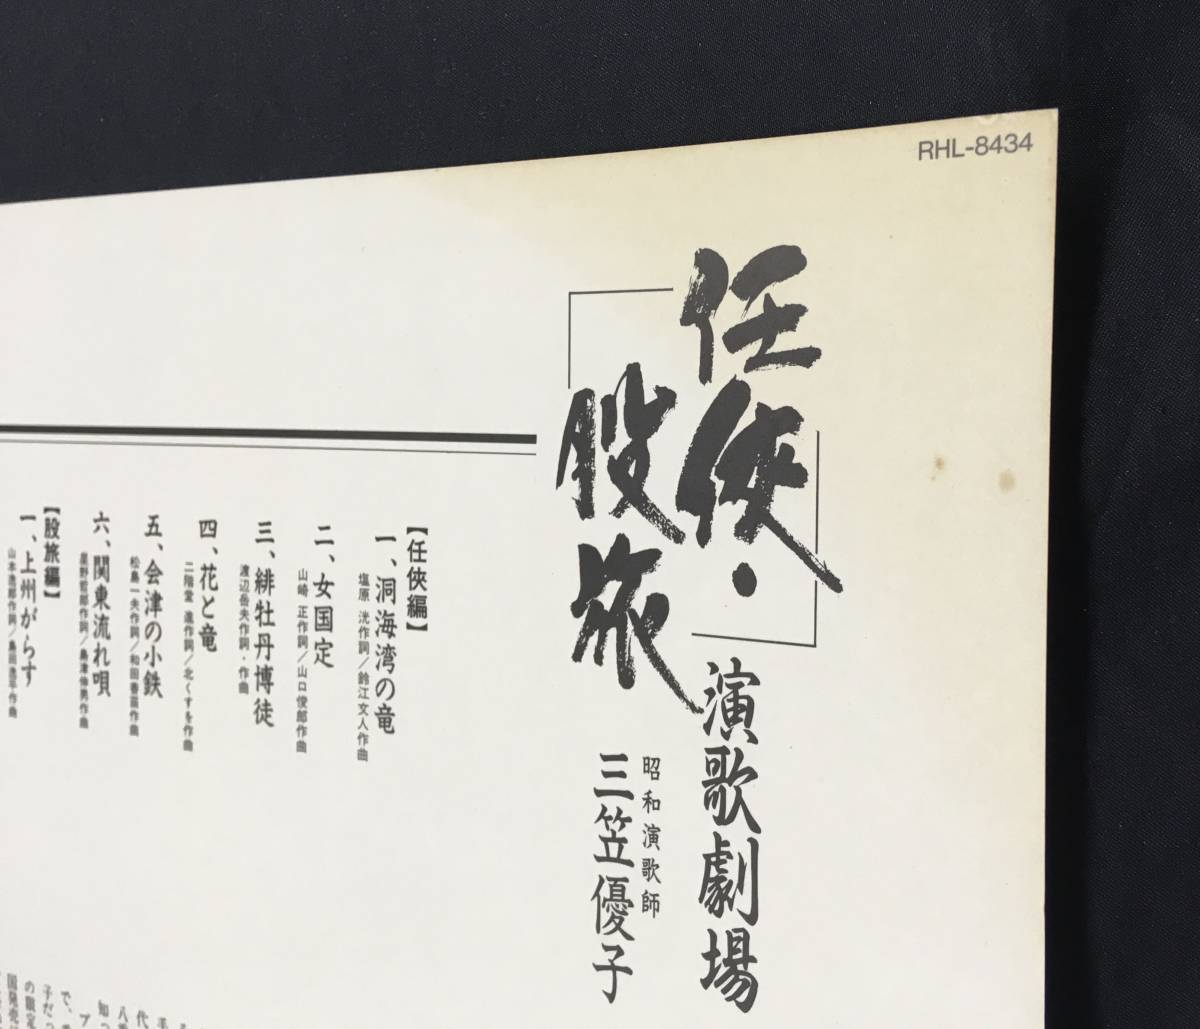 RHL-8434
「任俠・
股旅」
演歌劇場
昭和演歌師
三笠優子
【任侠編】
一、洞海湾の竜
塩原 洸作詞／鈴江文人作曲
二、女国定
山崎 正作詞／山口俊郎作曲
三、緋牡丹博徒
渡辺岳夫作詞・作曲
四、花と竜
二階堂 進作詞／北くすを作曲
五、会津の小鉄
松島一夫作詞／和田香苗作曲
六、関東流れ唄
星野哲郎作詞／島津伸男作曲
【股旅編】
一、上州がらす